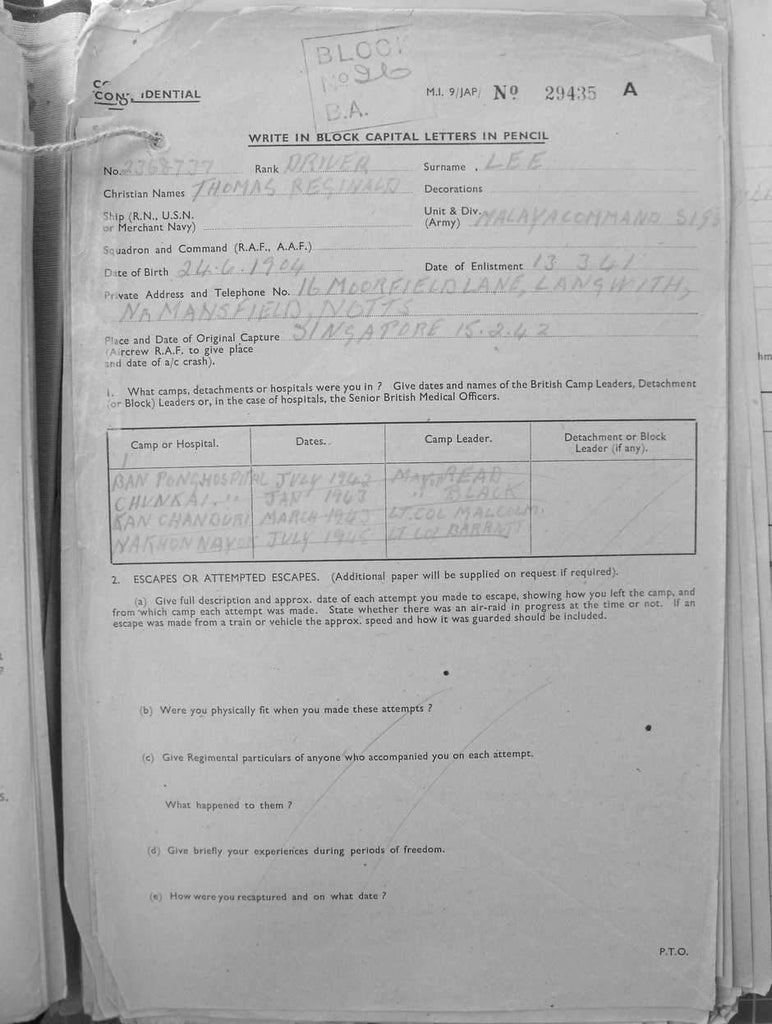 BLOCK
No 26
B.A.
CONFIDENTIAL
M.I. 9/JAP/ No 29435 A
WRITE IN BLOCK CAPITAL LETTERS IN PENCIL
No. 2368737 Rank DRIVER Surname LEE
Christian Names THOMAS REGINALD Decorations
Ship (R.N., U.S.N. or Merchant Navy)
Unit & Div. (Army) MALAYA COMMAND SIGS
Squadron and Command (R.A.F., A.A.F.)
Date of Birth 24.6.1904 Date of Enlistment 13 3 41
Private Address and Telephone No. 16 MOORFIELD LANE, LANGWITH,
NR MANSFIELD, NOTTS
Place and Date of Original Capture SINGAPORE 15.2.42
(Aircrew R.A.F. to give place
and date of a/c crash).
1. What camps, detachments or hospitals were you in ? Give dates and names of the British Camp Leaders, Detachment
or Block) Leaders or, in the case of hospitals, the Senior British Medical Officers.
Camp or Hospital. Dates. Camp Leader. Detachment or Block
Leader (if any).
BAN PONG HOSPITAL JULY 1942 MAJOR READ
CHUNKAI " JAN 1943 " BLACK
KAN CHANBURI MARCH 1943 LT. COL MALCOLM
NAKHON NAYOK JULY 1945 LT COL BARRATT
2. ESCAPES OR ATTEMPTED ESCAPES. (Additional paper will be supplied on request if required).
(a) Give full description and approx. date of each attempt you made to escape, showing how you left the camp, and
from which camp each attempt was made. State whether there was an air-raid in progress at the time or not. If an
escape was made from a train or vehicle the approx. speed and how it was guarded should be included.
(b) Were you physically fit when you made these attempts ?
(c) Give Regimental particulars of anyone who accompanied you on each attempt.
What happened to them ?
(d) Give briefly your experiences during periods of freedom.
(e) How were you recaptured and on what date ?
P.T.O.